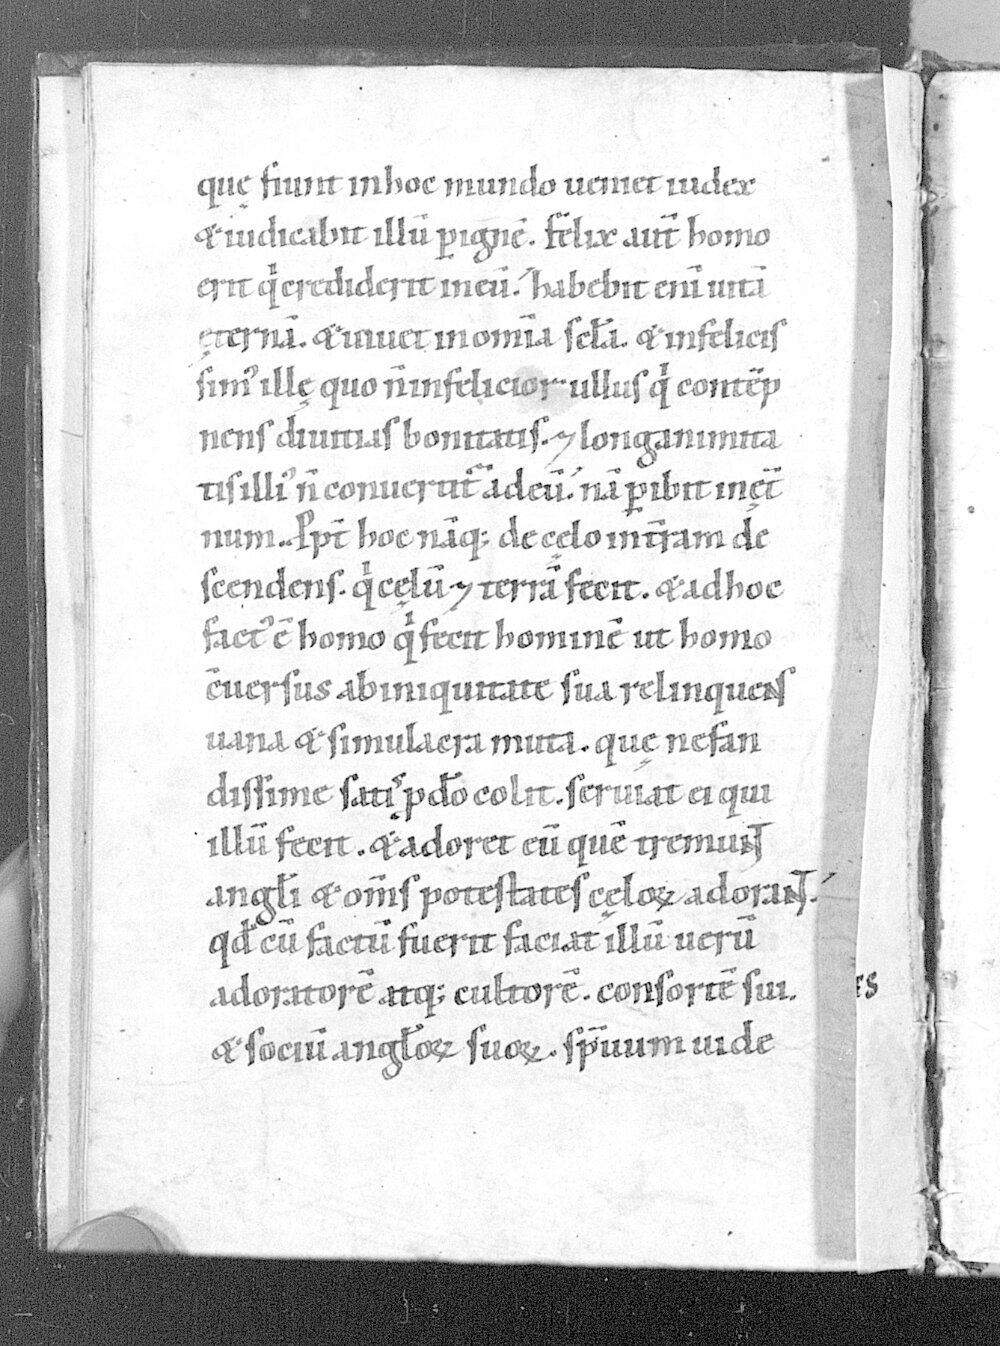 quę fiunt inhoc mundo ueniet iudex
& iudicabit illū ꝑignē. felix aut̄ homo
erit qͥcrediderit ineū. habebit eni̅ uitā
ęternā. &uiuet in om̄ia sc̄la. & infelicis
simꝰ illę quo n̄infelicior ullus qͥ contēp
nens diuitias bonitatis. ⁊ longanimita
tis illiꝰ n̄ conuertit᷒ adeū. nā ꝑibit inęt̄
num. Ppt̄ hoc nāq; de cęlo int̄ram de
scendens. qͥ cęlū ⁊ terrā fecit. & adhoc
factꝰ ē homo qͥ fecit hominē ut homo
c̄uersus abiniquitate sua relinquens
uana & simulacra muta. quę nefan
dissime satis ꝓdo colit. seruiat ei qui
illū fecit. & adoret eū quē tremunt
angl̄i & om̄s potestates cęloꝝ adorant.
qd̄ cū factū fuerit faciat illū uerū
adoratorē atq; cultorē. consortē sui.
& sociū angl̄oꝝ suoꝝ. sp̄uum uide
ES